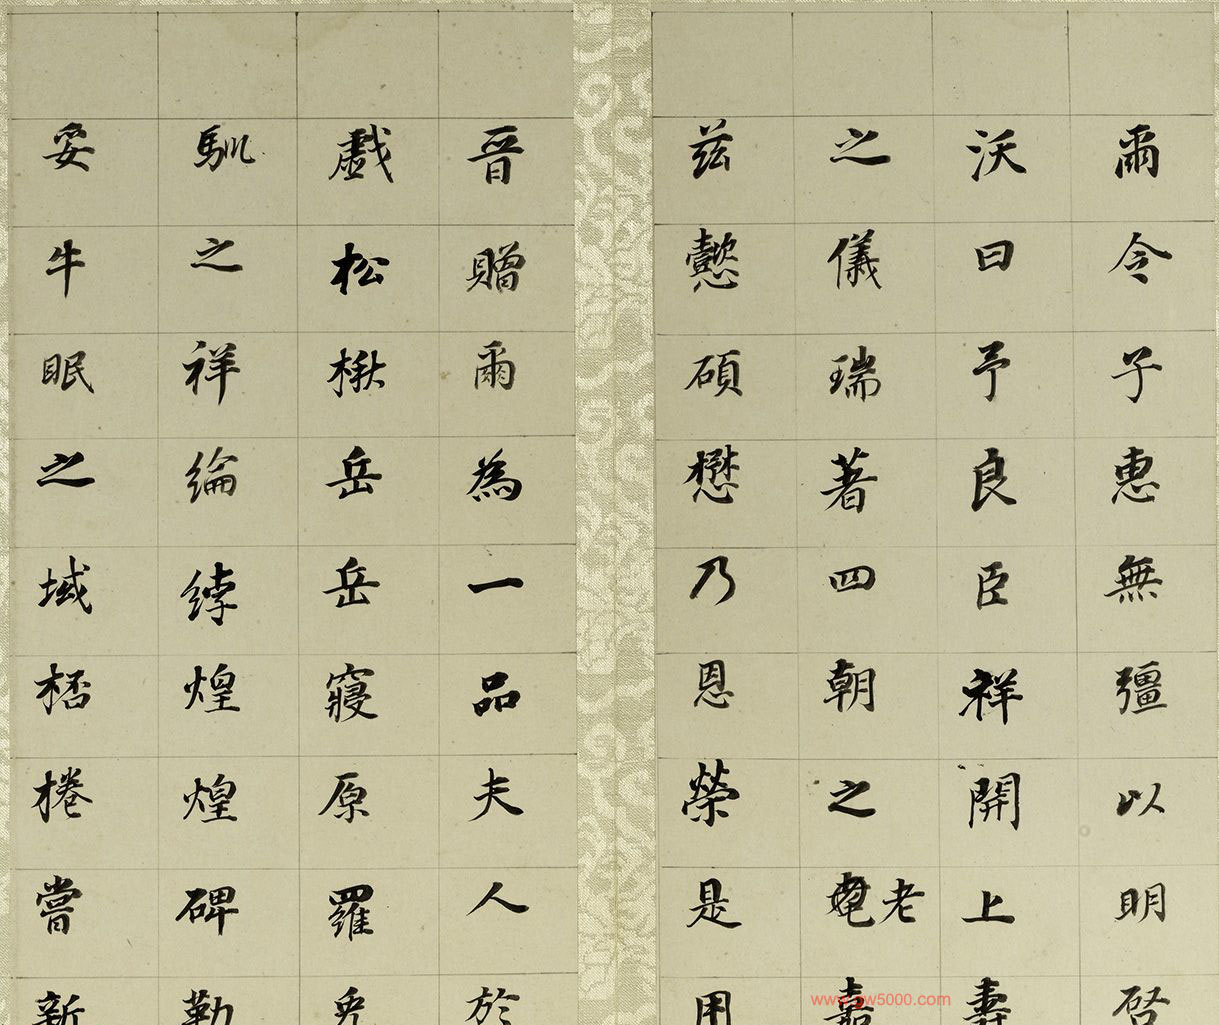 爾令子惠無彊以明啓
沃曰予良臣祥開上壽
之儀瑞著四朝之老嘉
茲懿碩懋乃恩榮是用
晉贈爾為一品夫人於
戲松楸岳岳寢原羅兕
馴之祥綸綍煌煌碑勒
妥牛眠之域桮棬嘗新
www.gw5000.com